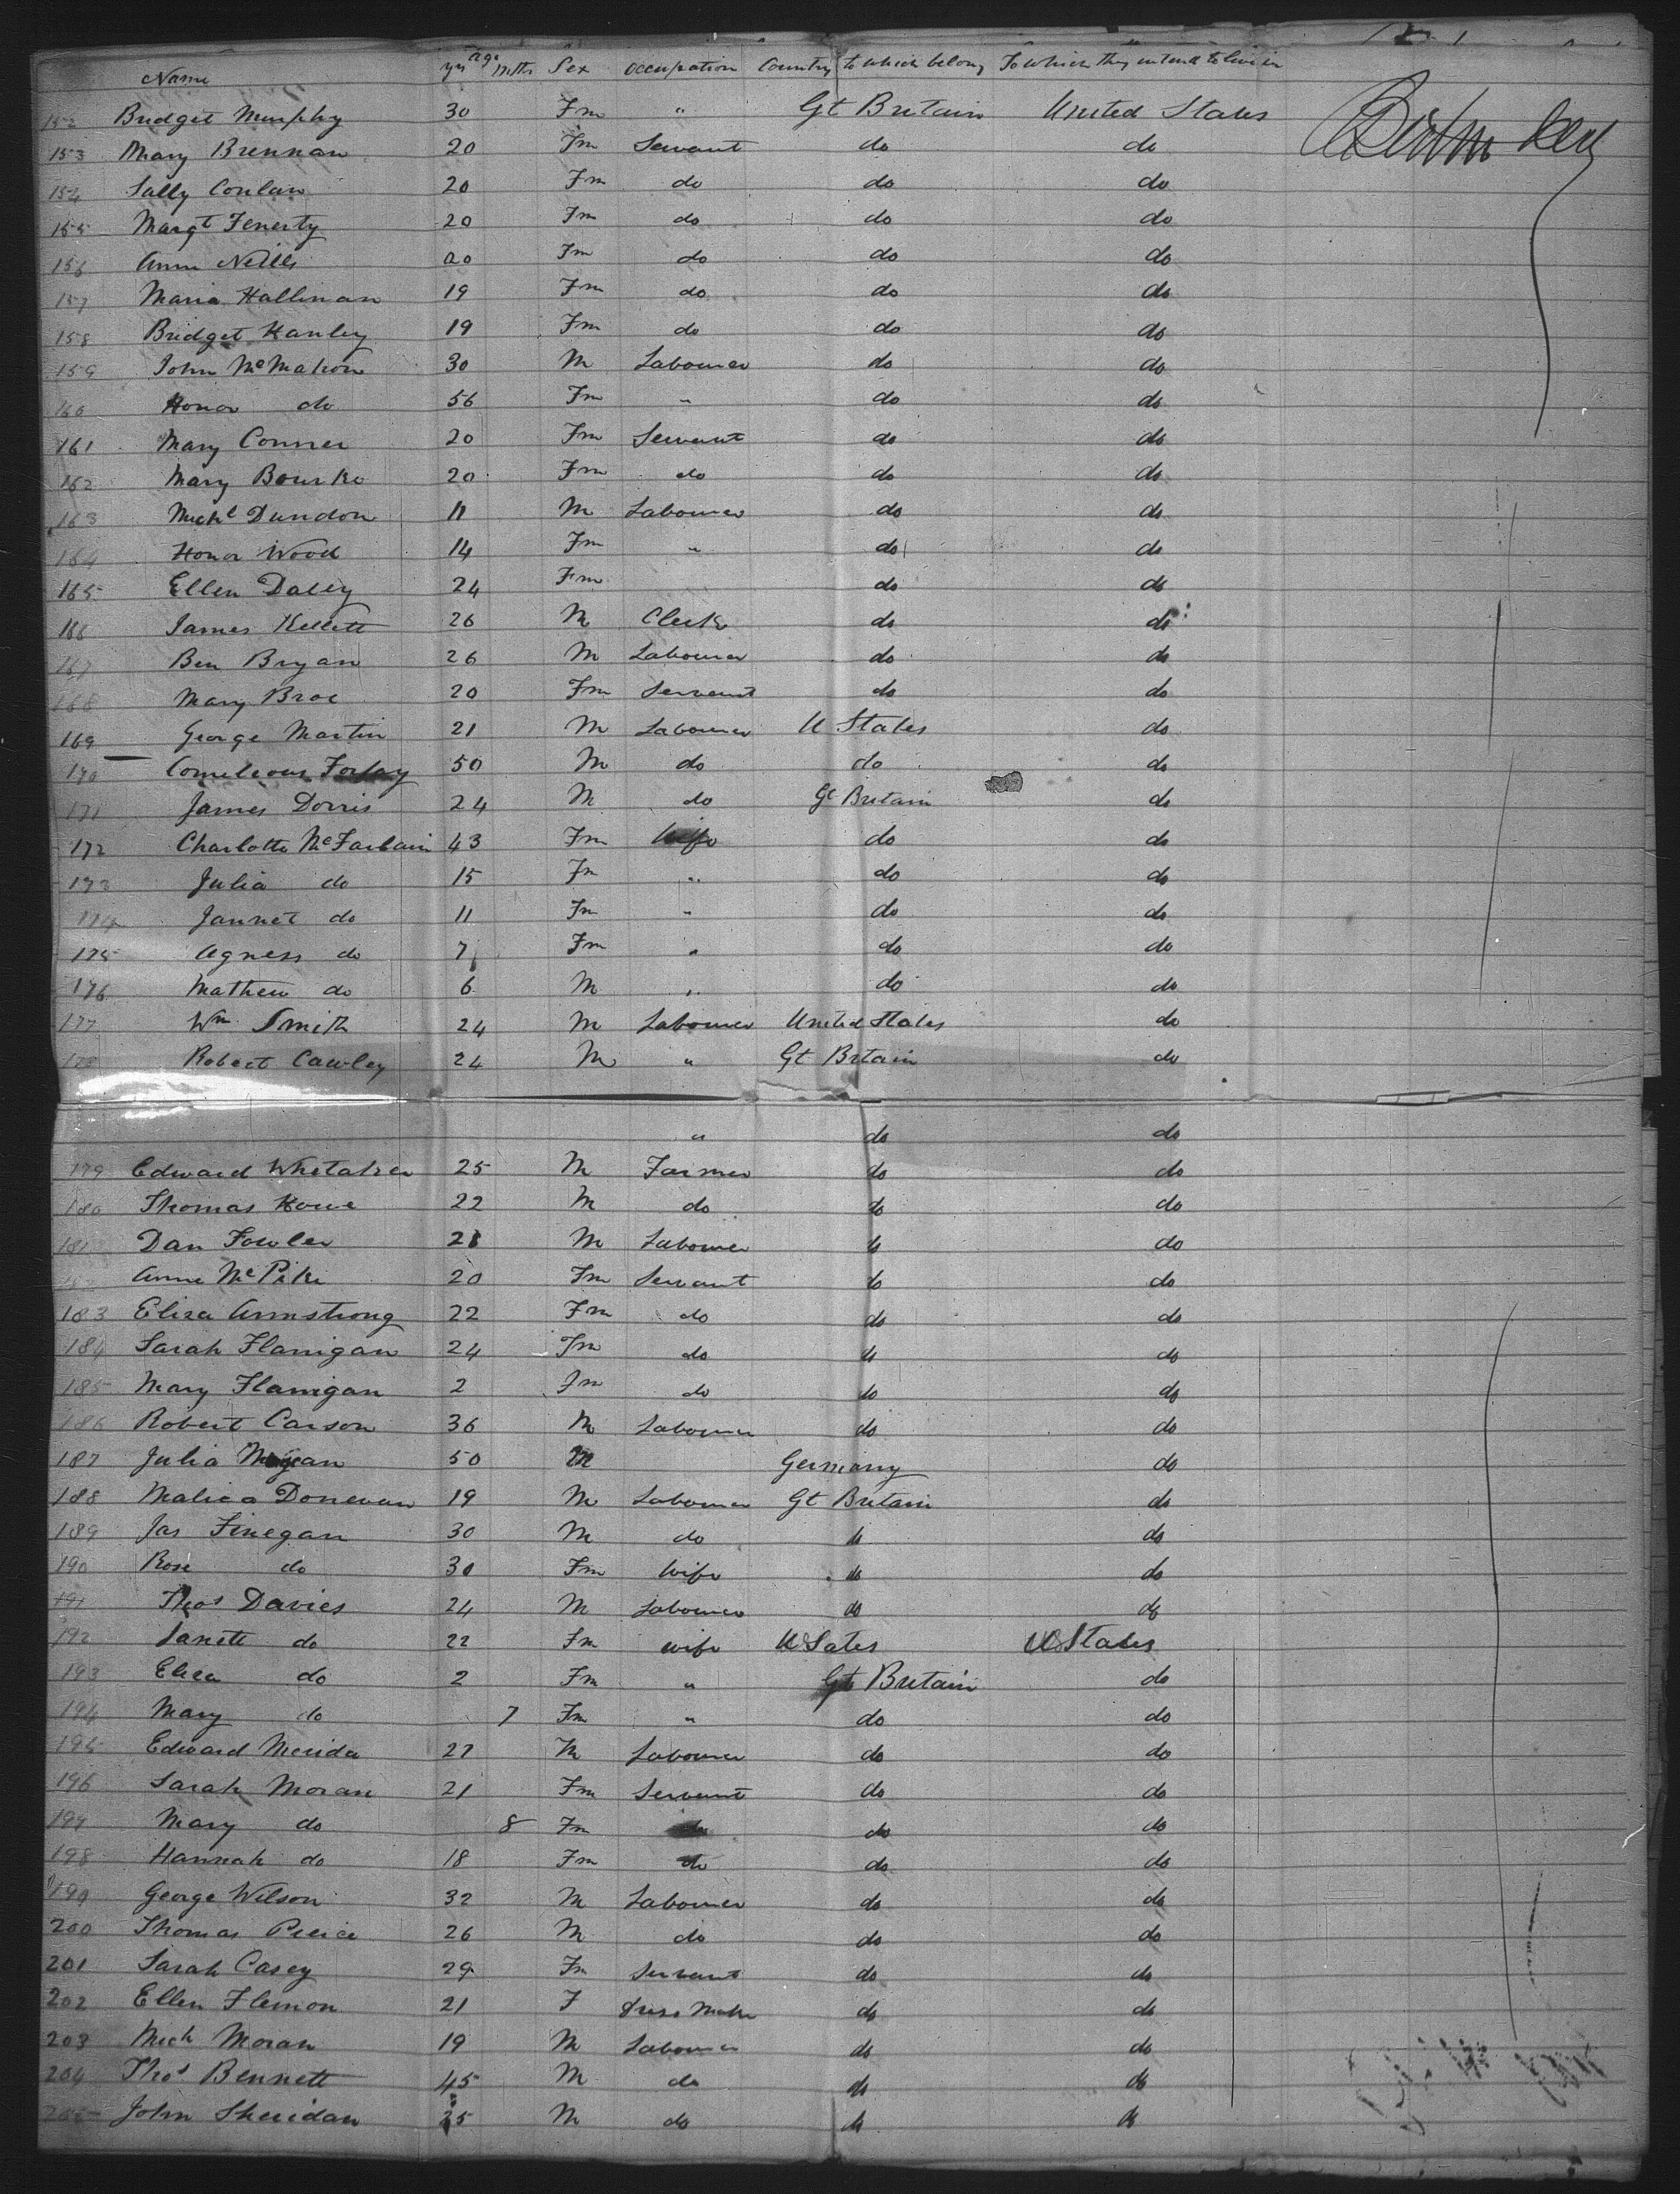 Name age yrs mths Sex occupation Country to which belong To which they intend to live in
152 Bridget Murphy 30 Fm " Gt Britain United States
153 Mary Brennan 20 Fm Servant do do
154 Sally Conlan 20 Fm do do do
155 Margt Fenerty 20 Fm do do do
156 Ann Neills 20 Fm do do do
157 Maria Hallinan 19 Fm do do do
158 Bridget Hanley 19 Fm do do do
159 John McMahon 30 M Labourer do do
160 Honor do 56 Fm " do do
161 Mary Conner 20 Fm Servant do do
162 Mary Bourke 20 Fm do do do
163 Michl Dundon 11 M Labourer do do
164 Honor Wood 14 Fm " do do
165 Ellen Daley 24 Fm do do
166 James Kellett 26 M Clerk do do
167 Ben Bryan 26 M Labourer do do
168 Mary Broe 20 Fm Servant do do
169 George Martin 21 M Labourer U States do
170 50 M do do do
171 James Dorris 24 M do Gt Britain do
172 Charlotte McFarlain 43 Fm Wife do do
173 Julia do 15 Fm " do do
174 Jannet do 11 Fm " do do
175 Agness do 7 Fm " do do
176 Mathew do 6 M " do do
177 Wm Smith 24 M Labourer United States do
178 Robert Cawley 24 M " Gt Britain do
" do do
179 Edward Whitaker 25 M Farmer do do
180 Thomas Howe 22 M do do do
181 Dan Fowler 21 M Labourer do do
182 Anne McPike 20 Fm Servant do do
183 Eliza Armstrong 22 Fm do do do
184 Sarah Flanigan 24 Fm do do do
185 Mary Flanigan 2 Fm do do do
186 Robert Carson 36 M Labourer do do
187 Julia 50 M Germany do
188 Donevan 19 M Labourer Gt Britain do
189 Jas Finegan 30 M do do do
190 Rose do 30 Fm Wife do do
191 Thos Davies 24 M Labourer do do
192 Janett do 22 Fm wife U Sates U States
193 Eliza do 2 Fm " Gt Britain do
194 Mary do 7 Fm " do do
195 Edward Merida 27 M Labourer do do
196 Sarah Moran 21 Fm Servant do do
197 Mary do 8 Fm do do do
198 Hannah do 18 Fm do do do
199 George Wilson 32 M Labourer do do
200 Thomas Peirce 26 M do do do
201 Sarah Casey 29 Fm Servant do do
202 Ellen Flemon 21 F Dress Maker do do
203 Mich Moran 19 M Labourer do do
204 Thos Bennett 45 M do do do
205 John Sheridan 25 M do do do